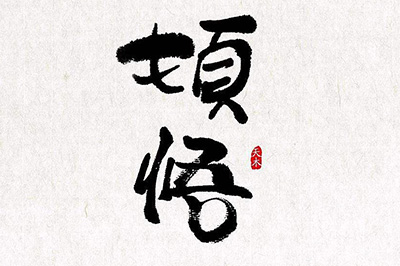 頓悟
天木